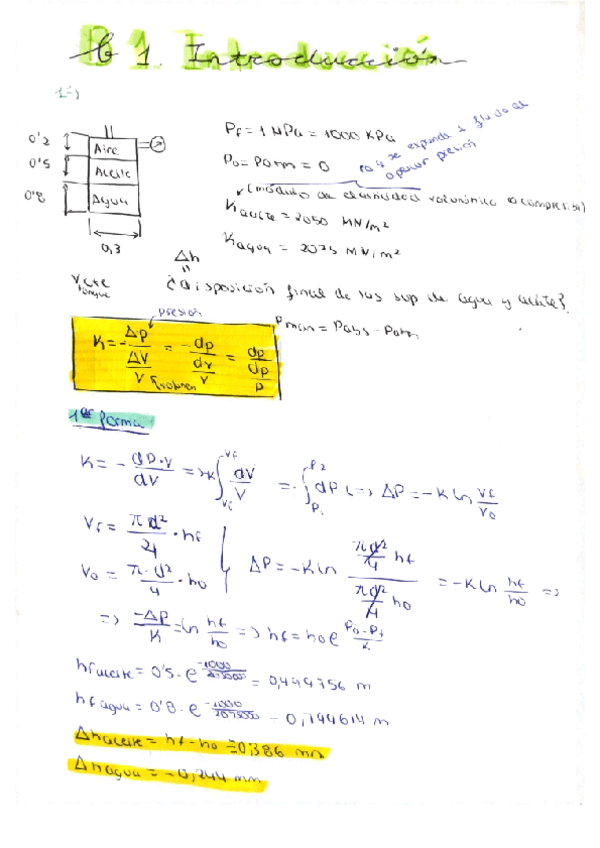 B1. Introducción
1º)
0'2
0'5
0'8
Aire
Aceite
Agua
0,3
Pf = 1 MPa = 1000 KPa
Po = Patm = 0
se expande a
presión
(módulo de elasticidad volumétrico o compresión)
Kaceite = 2050 MN/m²
Kagua = 2075 MN/m²
Δh
Vcte
tanque
¿disposición final de las sup de agua y aceite?
Pman = Pabs - Patm
presión
K = - Δp / (ΔV / V) = - dp / (dv / v) = dp / (dp / p)
volumen
1ª forma
K = - dP·V / dV => -K ∫ dV / V = ∫ dP (=> ΔP = -K ln Vf / Vo
Vf = π d² / 4 · hf
Vo = π·d² / 4 · ho
ΔP = -K ln (π d² / 4 hf) / (π d² / 4 ho) = -K ln hf / ho =>
=> -ΔP / K = ln hf / ho => hf = ho e^(Po-Pf / K)
hf aceite = 0'5 · e^(-1000 / 2050000) = 0,499756 m
hf agua = 0'8 · e^(-1000 / 2075000) = 0,799614 m
Δhaceite = hf - ho = 0,386 mm
Δhagua = -0,244 mm